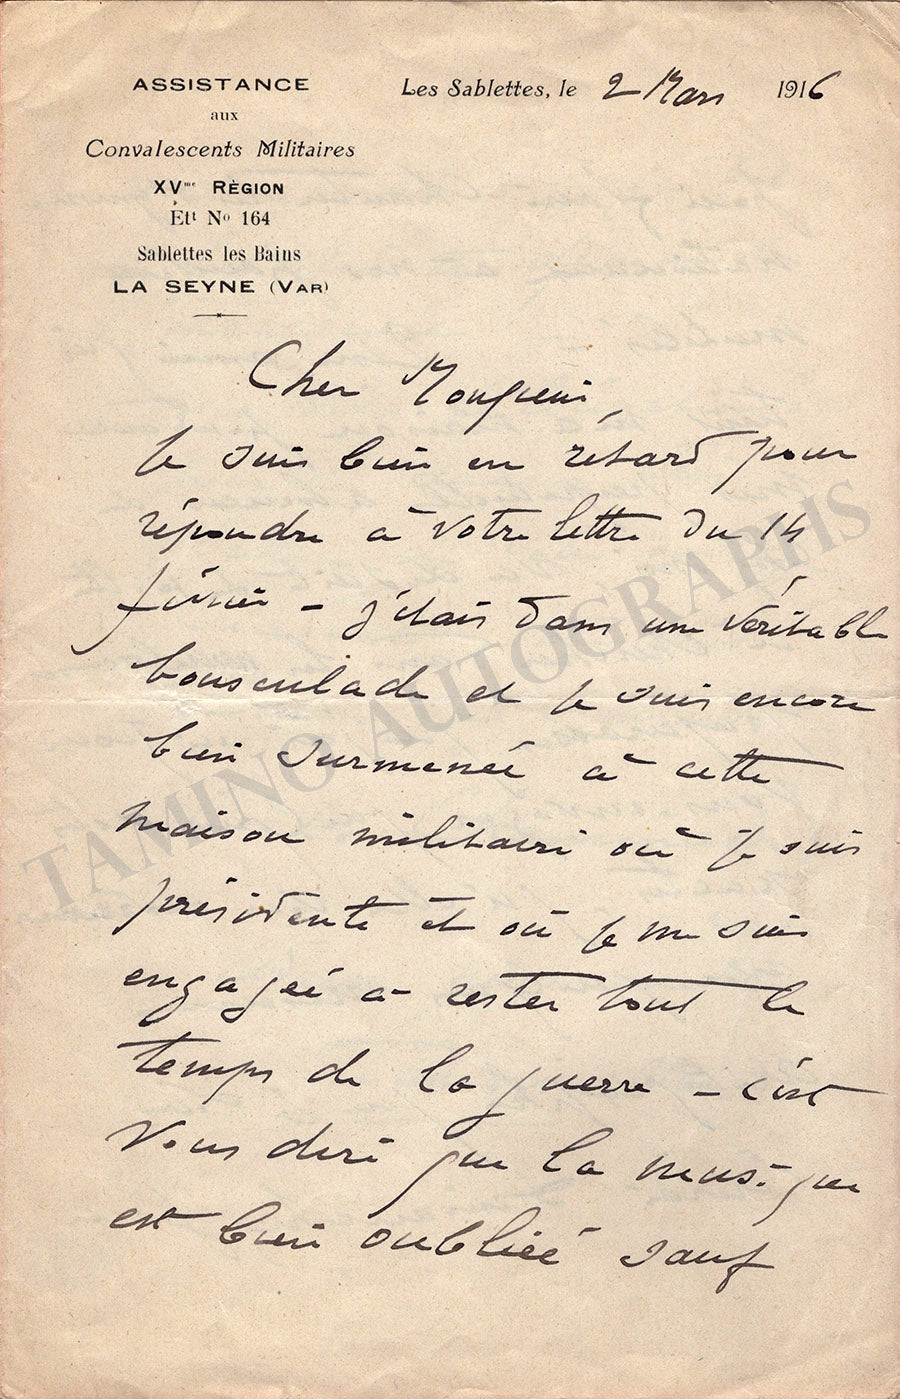 ASSISTANCE
aux
Convalescents Militaires
XVme RÈGION
Ett No 164
Sablettes les Bains
LA SEYNE (VAR)
Les Sablettes, le 2 Mars 1916
Cher Monsieur,
Je suis bien en rétard pour
répondre à votre lettre du 14
février – j'étais dans une véritable
bousculade et je suis encore
bien surmenée à cette
maison militaire où je suis
présidente et où je me suis
engagée à rester tout le
temps de la guerre – c'est
vous dire que la musique
est bien oubliée sauf
TAMINO AUTOGRAPHS